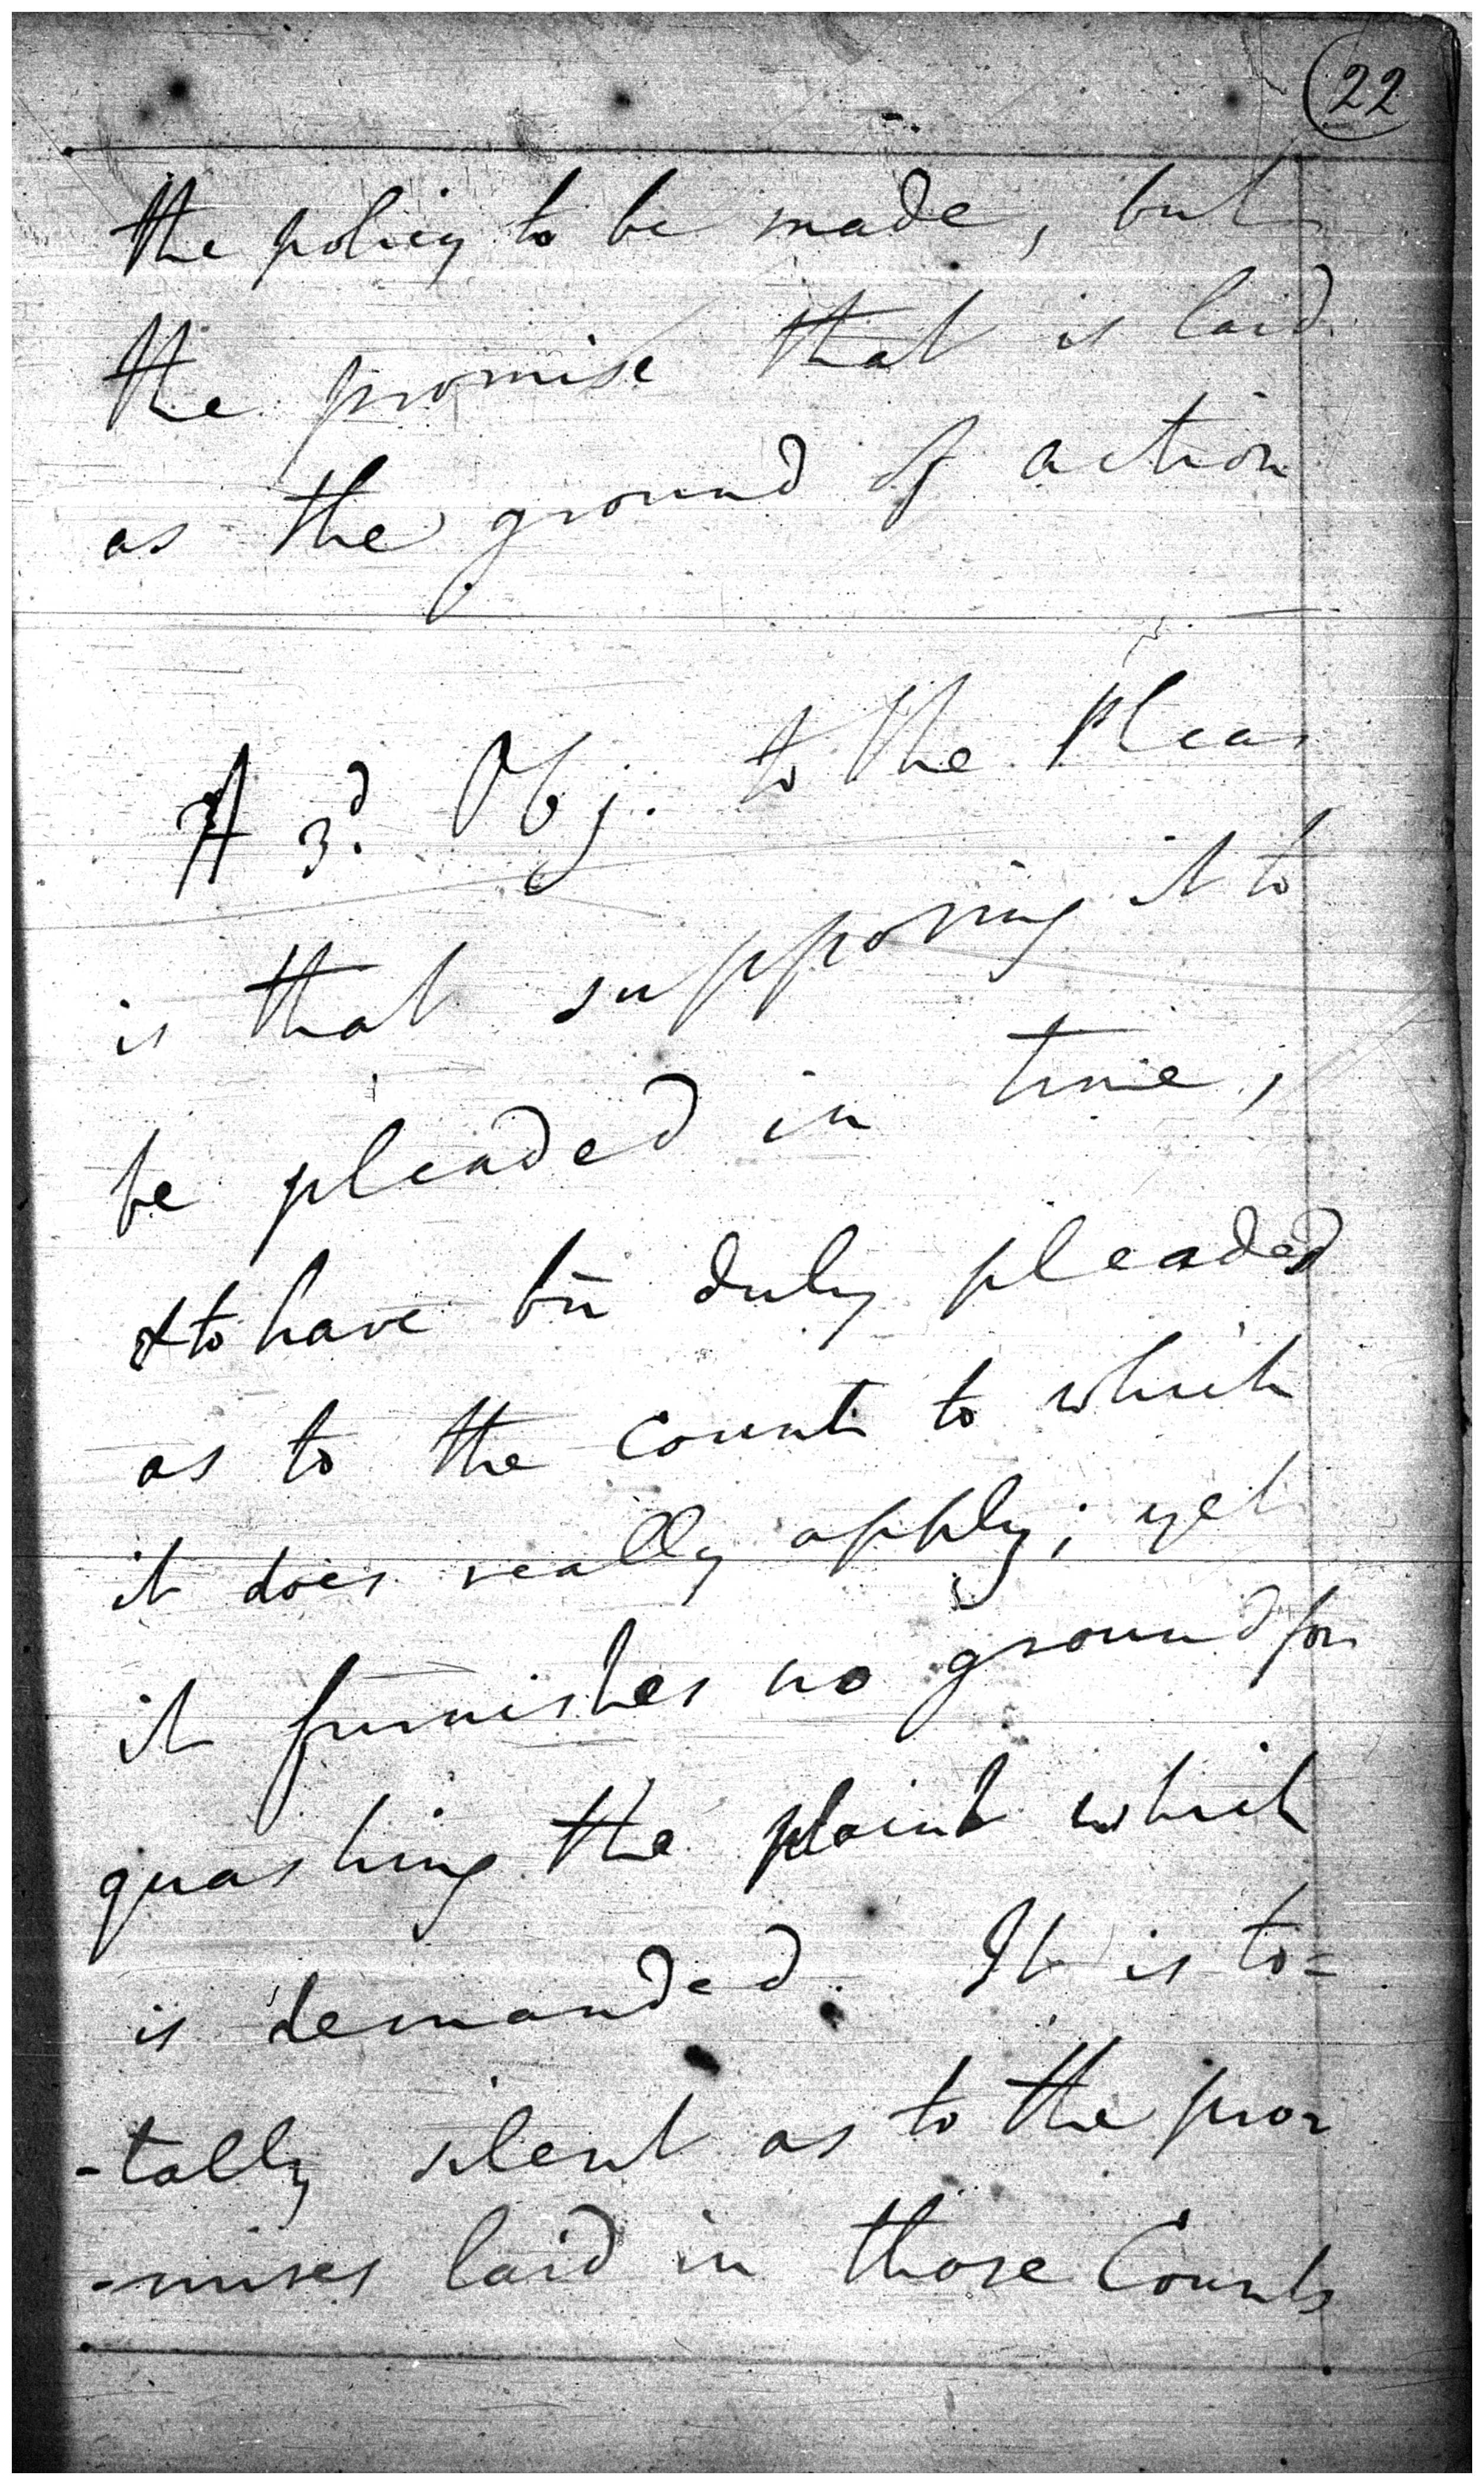 22
the policy to be made, but
the promise that is laid
as the ground of action
A 3d. Obj. to the Pleas
is that supposing it to
be pleaded in time,
& to have bn̄ duly pleaded
as to the Counts to which
it does really apply; yet
it furnishes no ground for
quashing the plaint which
is demanded. It is to=
-tally silent as to the pro
-mises laid in those Counts